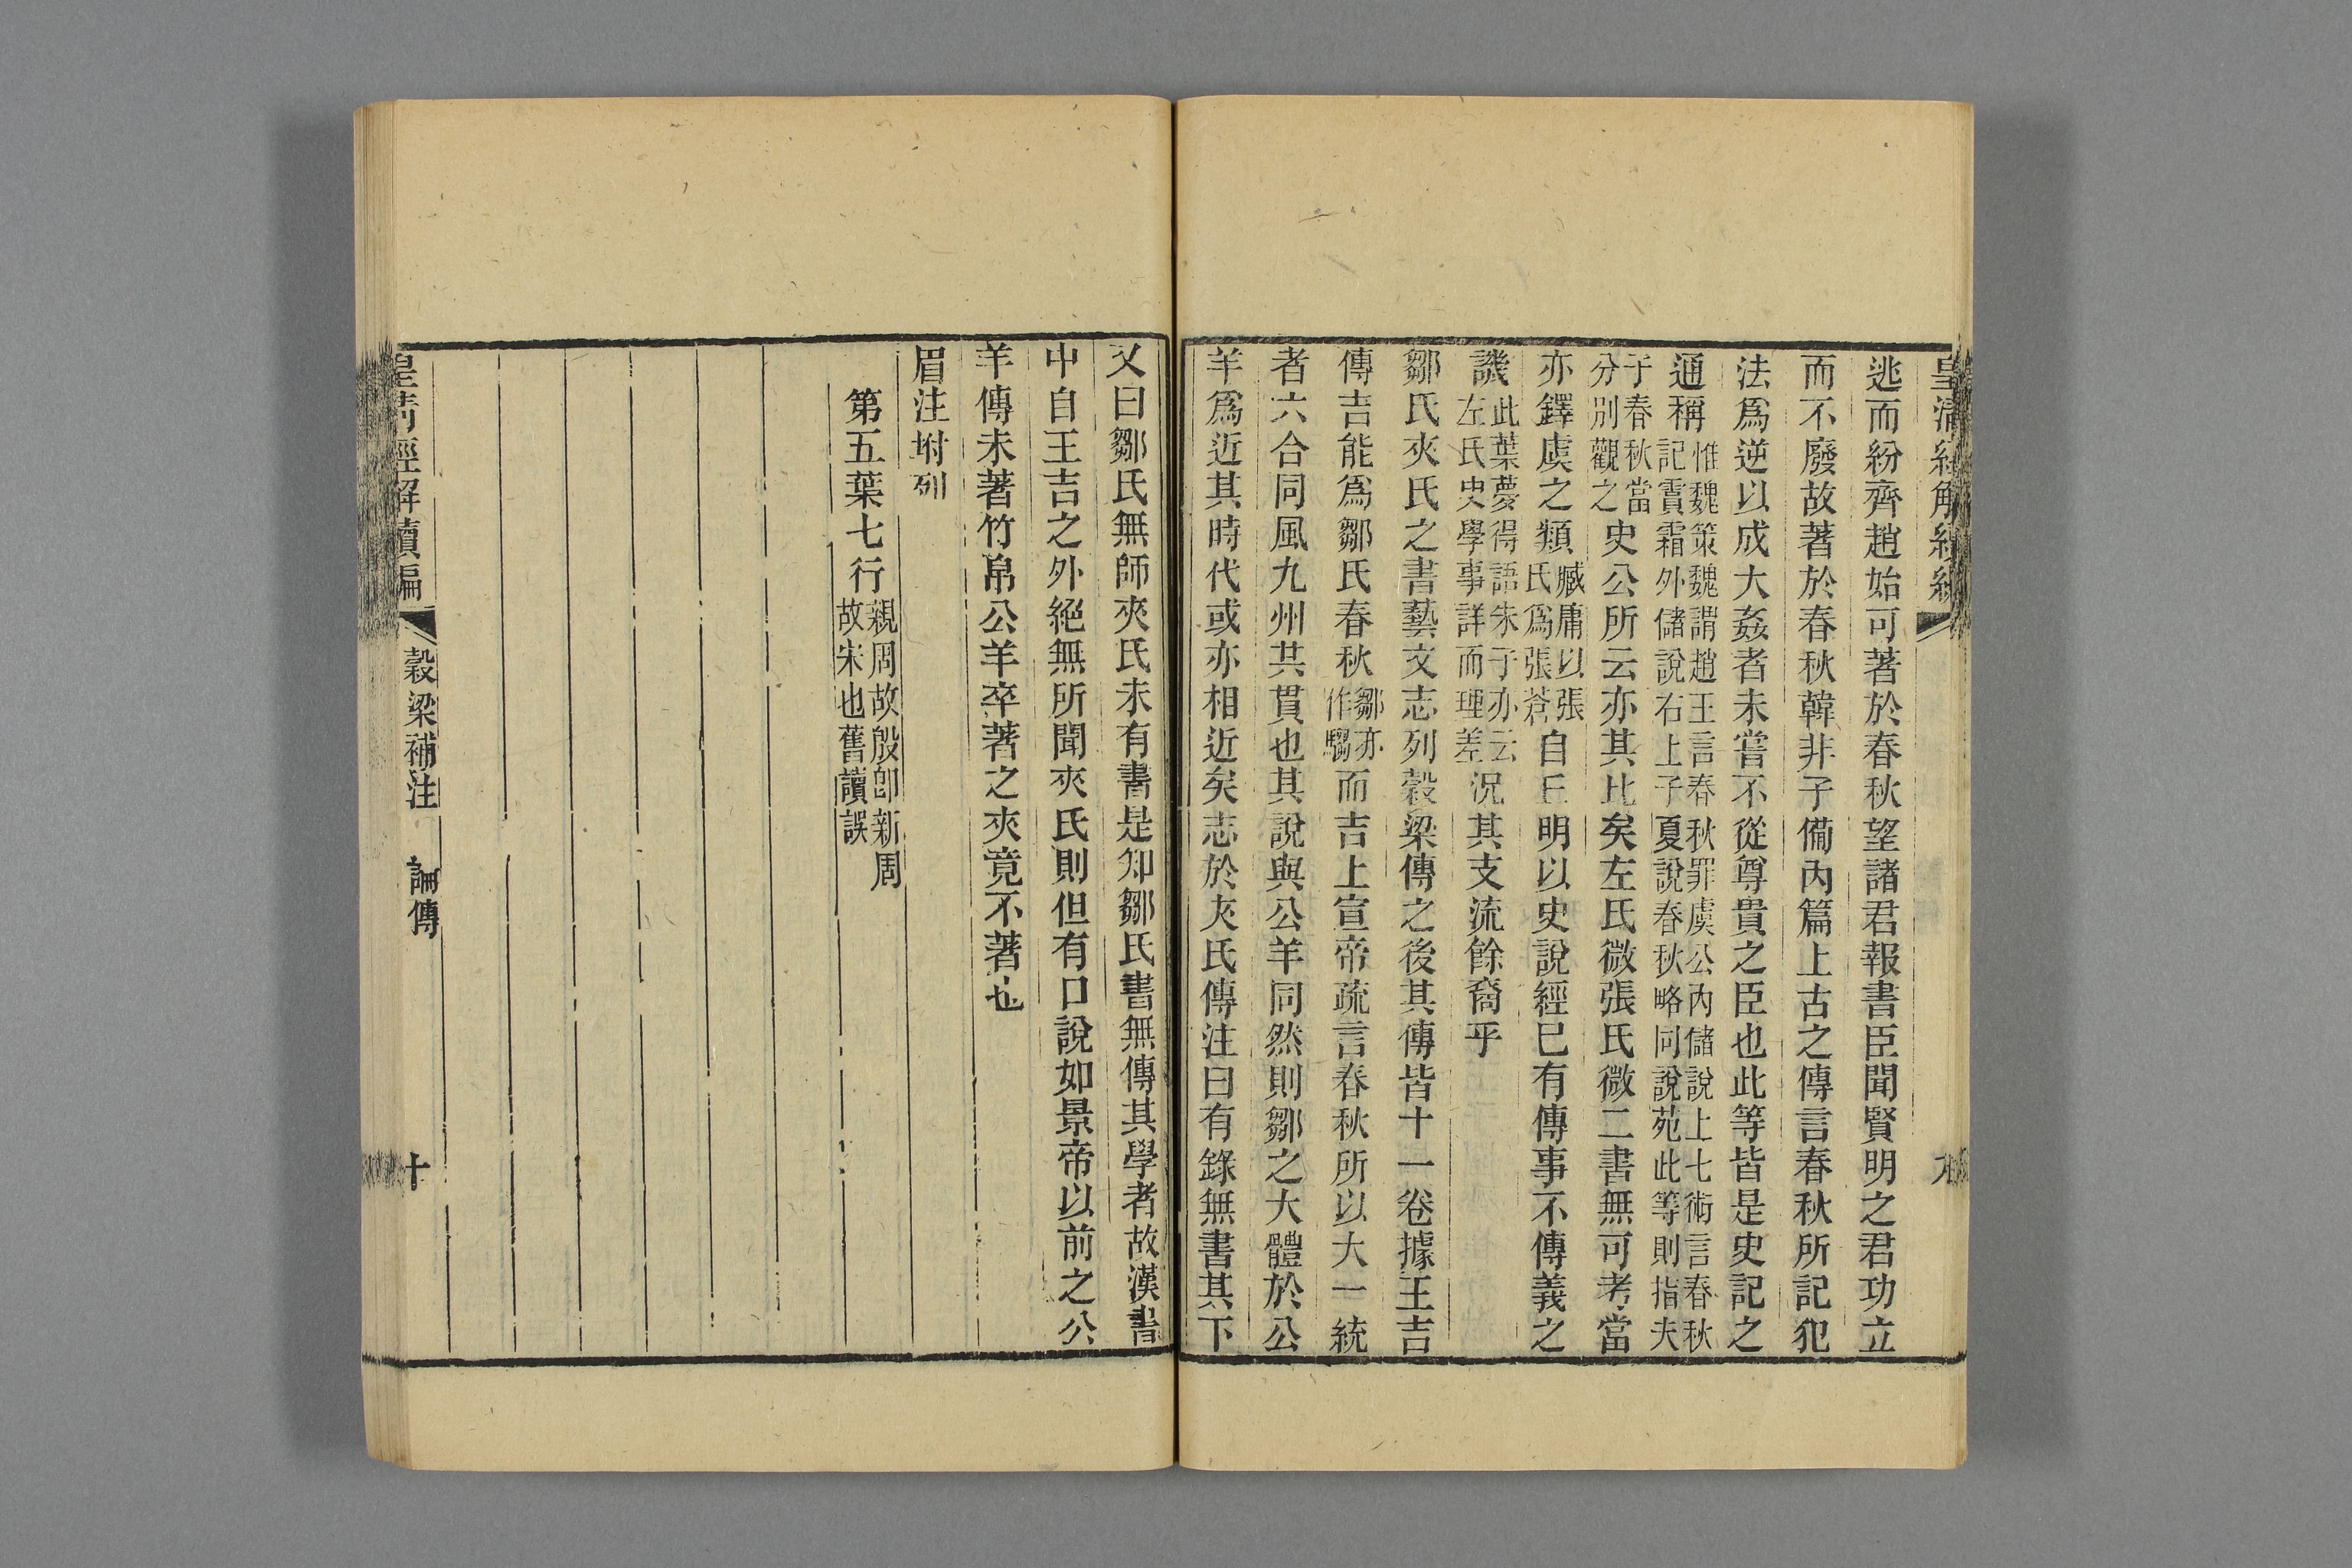 皇清經解續編
九
逃而紛齊趙始可著於春秋望諸君報書臣聞賢明之君功立
而不廢故著於春秋韓非子備內篇上古之傳言春秋所記犯
法爲逆以成大姦者未嘗不從尊貴之臣也此等皆是史記之
通稱惟魏策魏謂趙王言春秋罪虞公內儲說上七術言春秋
記霣霜外儲說右上子夏說春秋略同說苑此等則指夫
于春秋當
分別觀之史公所云亦其比矣左氏微張氏微二書無可考當
亦鐸虞之類臧庸以張
氏爲張蒼自丘明以史說經已有傳事不傳義之
譏此葉夢得語朱子亦云
左氏史學事詳而理差況其支流餘裔乎
鄒氏夾氏之書藝文志列穀梁傳之後其傳皆十一卷據王吉
傳吉能爲鄒氏春秋鄒亦
作騶而吉上宣帝疏言春秋所以大一統
者六合同風九州共貫也其說與公羊同然則鄒之大體於公
羊爲近其時代或亦相近矣志於夾氏傳注曰有錄無書其下
又曰鄒氏無師夾氏未有書是知鄒氏書無傳其學者故漢書
中自王吉之外絕無所聞夾氏則但有口說如景帝以前之公
羊傳未著竹帛公羊卒著之夾竟不著也
眉注坿列
第五葉七行親周故殷卽新周
故宋也舊讀誤
皇清經解續編
穀梁補注
論傳
十